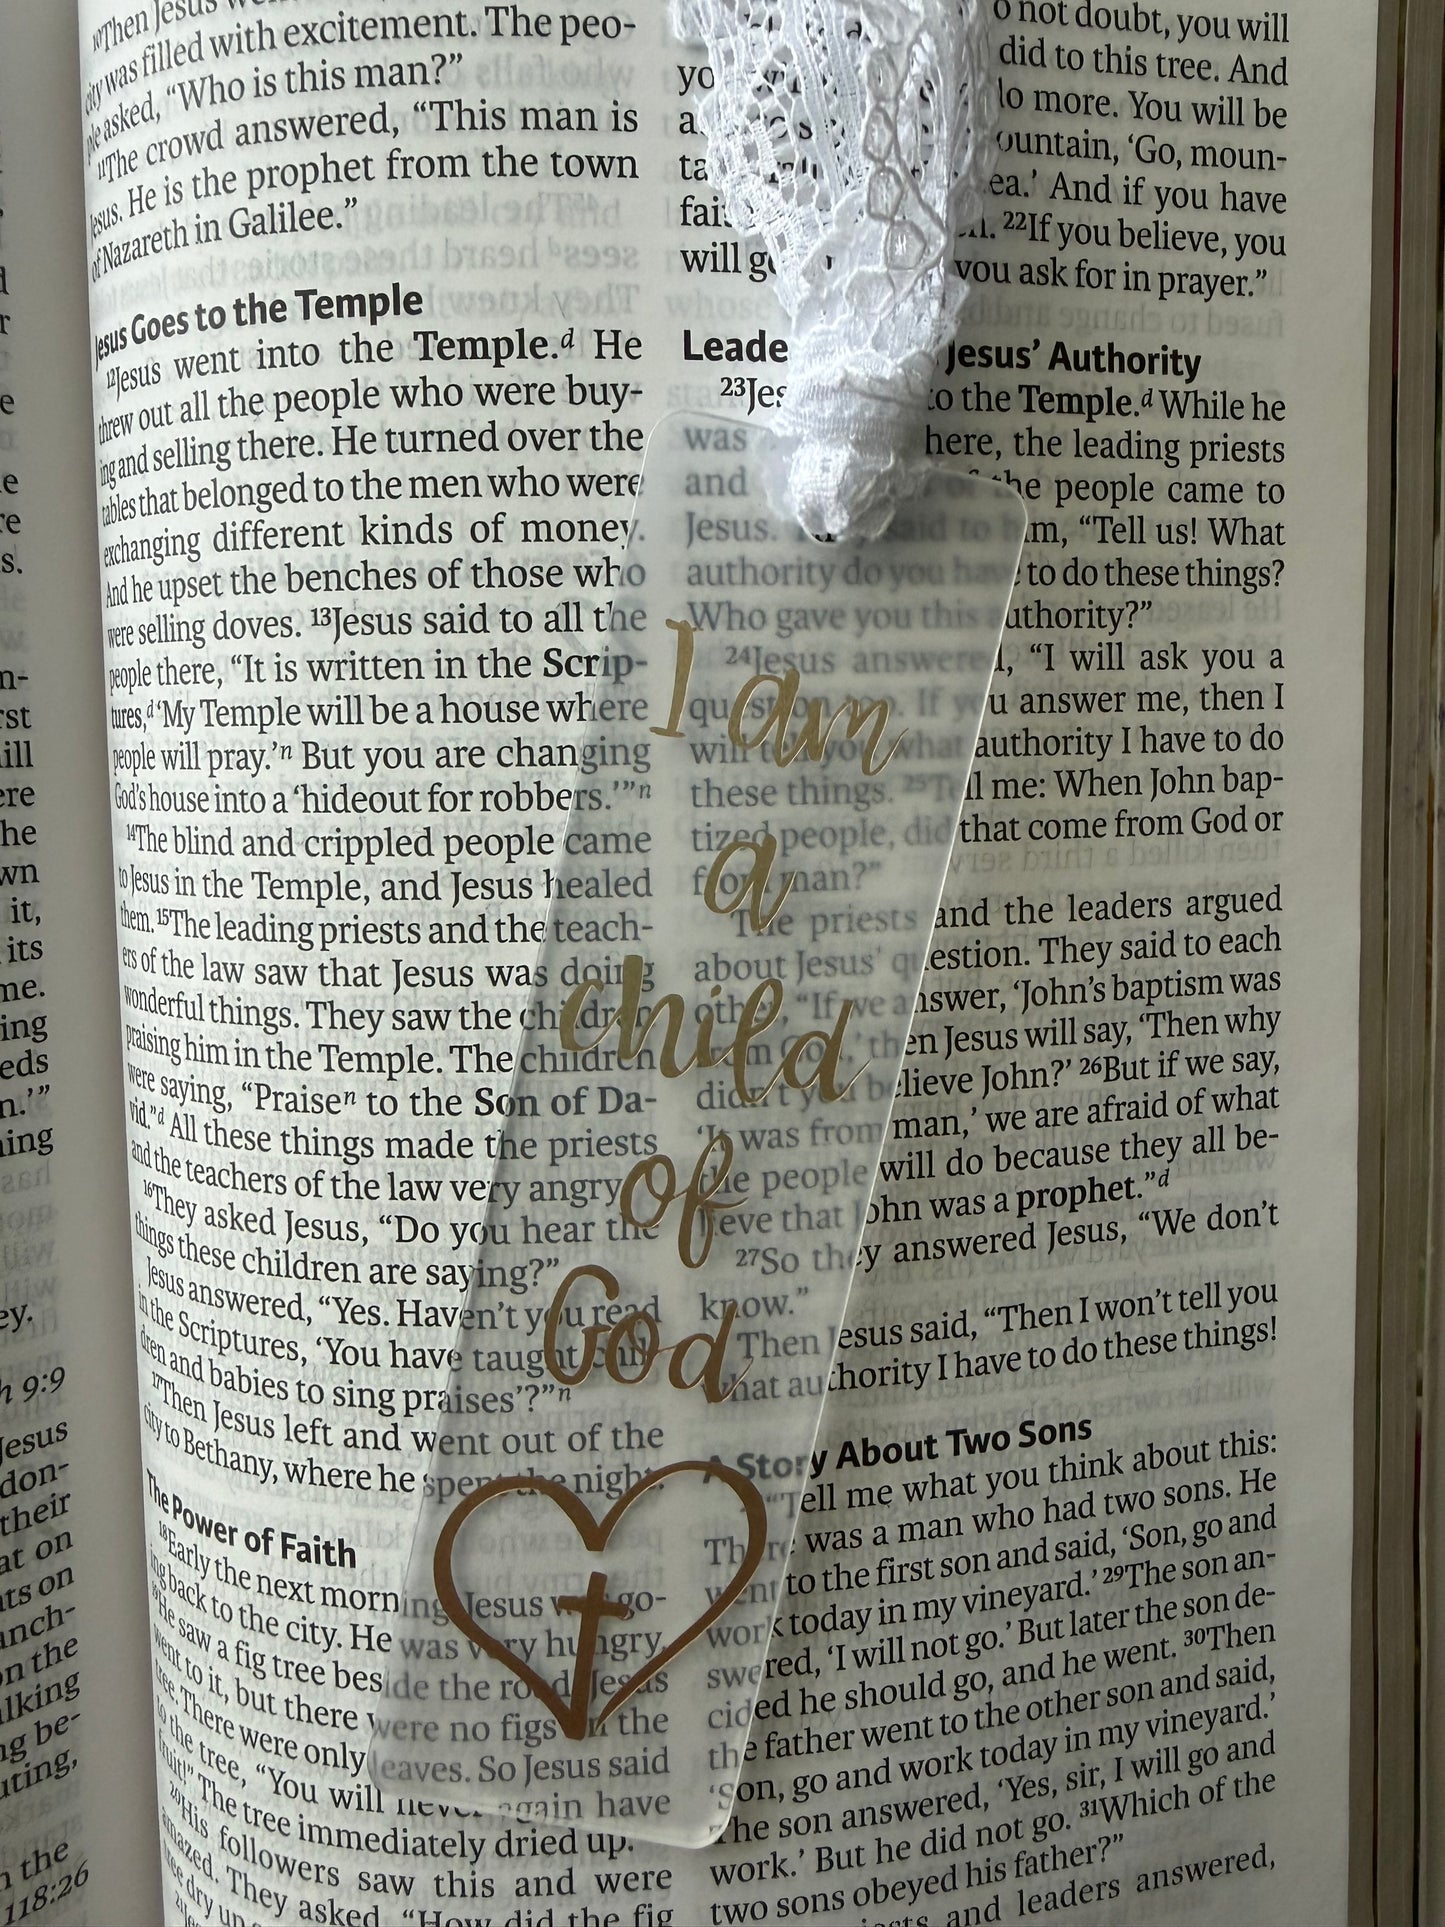 10Then Jesus
city was filled with excitement. The peo-
ple asked, “Who is this man?”
11The crowd answered, “This man is
Jesus. He is the prophet from the town
of Nazareth in Galilee.”
Jesus Goes to the Temple
12Jesus went into the Temple.d He
threw out all the people who were buy-
ing and selling there. He turned over the
tables that belonged to the men who were
exchanging different kinds of money.
And he upset the benches of those who
were selling doves. 13Jesus said to all the
people there, “It is written in the Scrip-
tures,d ‘My Temple will be a house where
people will pray.’n But you are changing
God’s house into a ‘hideout for robbers.’”n
14The blind and crippled people came
to Jesus in the Temple, and Jesus healed
them. 15The leading priests and the teach-
ers of the law saw that Jesus was doing
wonderful things. They saw the children
praising him in the Temple. The children
were saying, “Praisen to the Son of Da-
vid.”d All these things made the priests
and the teachers of the law very angry.
16They asked Jesus, “Do you hear the
things these children are saying?”
Jesus answered, “Yes. Haven’t you read
in the Scriptures, ‘You have taught chil-
dren and babies to sing praises’?”n
17Then Jesus left and went out of the
city to Bethany, where he spent the night.
The Power of Faith
18Early the next morning, Jesus was go-
ing back to the city. He was very hungry.
19He saw a fig tree beside the road. Jesus
went to it, but there were no figs on the
tree. There were only leaves. So Jesus said
to the tree, “You will never again have
fruit!” The tree immediately dried up.
20His followers saw this and were
amazed. They asked, “How did the fig
tree dry up
not doubt, you will
did to this tree. And
more. You will be
‘Go, moun-
And if you have
22If you believe, you
will you ask for in prayer.”
Jesus’ Authority
to the Temple.d While he
was here, the leading priests
and the people came to
Jesus. said to him, “Tell us! What
authority do you have to do these things?
Who gave you this authority?”
24Jesus answered, “I will ask you a
question too. If you answer me, then I
will tell you what authority I have to do
these things. 25Tell me: When John bap-
tized people, did that come from God or
from man?”
The priests and the leaders argued
about Jesus’ question. They said to each
other, “If we answer, ‘John’s baptism was
from God,’ then Jesus will say, ‘Then why
didn’t you believe John?’ 26But if we say,
‘It was from man,’ we are afraid of what
the people will do because they all be-
lieve that John was a prophet.”d
27So they answered Jesus, “We don’t
know.”
Then Jesus said, “Then I won’t tell you
what authority I have to do these things!
A Story About Two Sons
“Tell me what you think about this:
There was a man who had two sons. He
went to the first son and said, ‘Son, go and
work today in my vineyard.’ 29The son an-
swered, ‘I will not go.’ But later the son de-
cided he should go, and he went. 30Then
the father went to the other son and said,
‘Son, go and work today in my vineyard.’
The son answered, ‘Yes, sir, I will go and
work.’ But he did not go. 31Which of the
two sons obeyed his father?”
and leaders answered,
I am
a
child
of
God
9:9
Jesus
their
on the
118:26